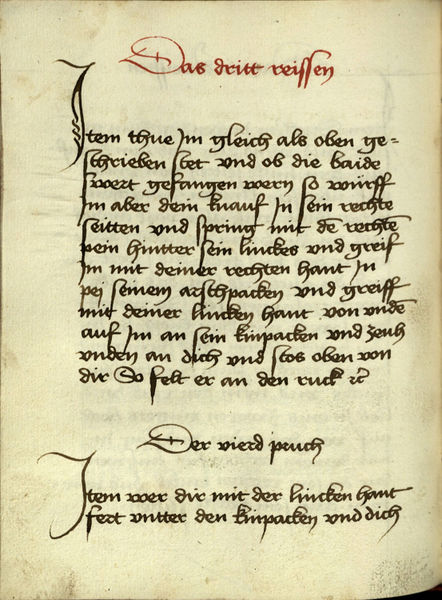 Das dritt reissen
Item thue Im gleich als oben ge=
schrieben stet vnd ob die baide
swert gefangen wern so würff
Im aber dein knauf In sein rechte
seitten vnd spring mit dē rechtē
pein hintter sein linckes vnd greif
Im mit deiner rechten hant In
pei seinem arschpacken vnd greiff
mit deiner lincken hant von vndē
auf Im an sein kinpacken vnd zeuh
vnden an dich vnd stos oben von
dir So felt er an den ruck rc
Der vierd pruch
Item wer dir mit der lincken hant
fert vntter den kinpacken vnd dich